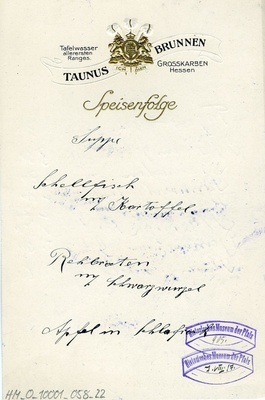 Tafelwasser
allerersten
Ranges.
TAUNUS BRUNNEN
GROSSKARBEN
Hessen
Speisenfolge
Suppe
Schellfisch
m/ Kartoffel
Rehbraten
m/ Schwarzwurzel
Apfel in Schlafrock
Historisches Museum der Pfalz
Historisches Museum der Pfalz
HM_0_10001_058_22